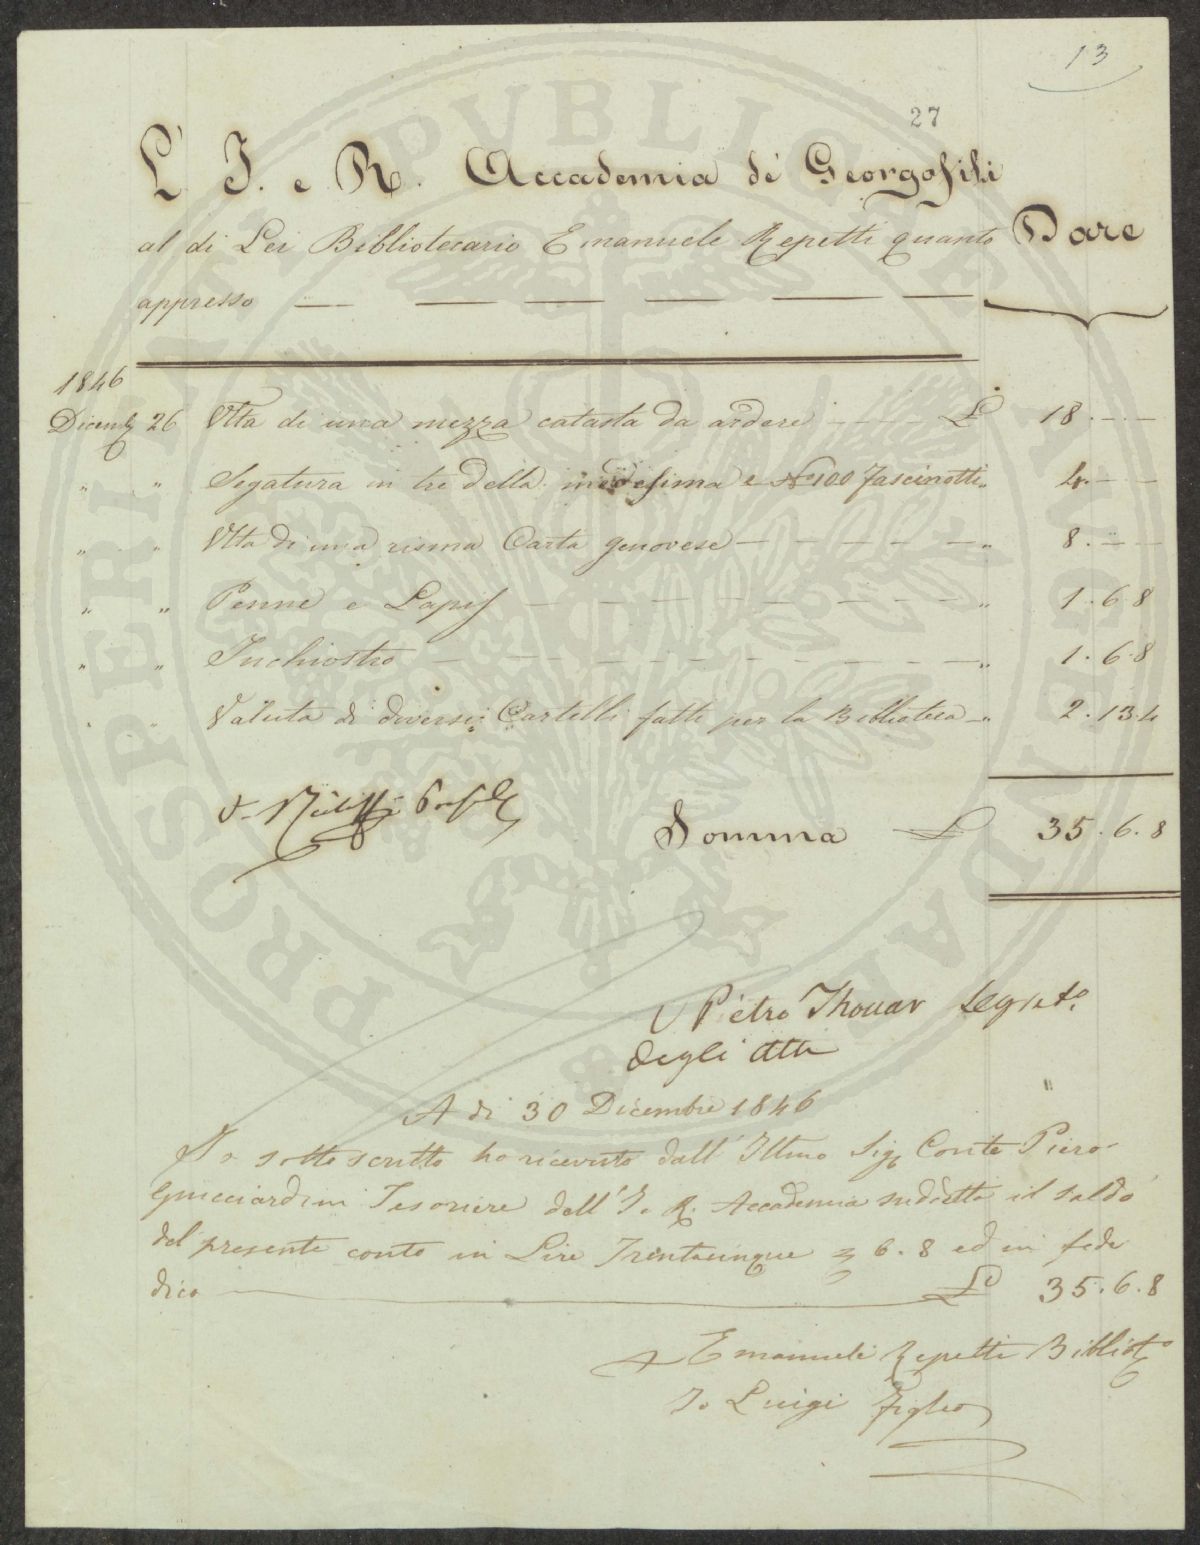 13
27
L' I. e R. Accademia de' Georgofili
al di Lei Bibliotecario Emanuele Repetti quanto Dare
appresso
1846
Dicembe 26 Vtta di una mezza catasta da ardere L 18.
" " Segatura in tre della medesima e No 100 Fascinotti " 4.
" " Vtta di una risma Carta genovese " 8.
" " Penne e Lapis " 1.6.8
" " Inchiostro " 1.6.8
" " Valuta di diversi Cartelli fatti per la Biblioteca " 2.13.4
V.
Somma L 35.6.8
V Pietro Thouar Segreto
degli Atti
A dì 30 Dicembre 1846
Io sottoscritto ho ricevuto dall' Illmo Sig Conte Piero
Guicciardini Tesoriere dell' I. R. Accademia suddetta il saldo
del presente conto in Lire Trentacinque 6.8 ed in fede
dico L 35.6.8
Emanuele Repetti Bibliot
Io Luigi Figlio
PROSPERITATI PUBLICAE AUGENDAE